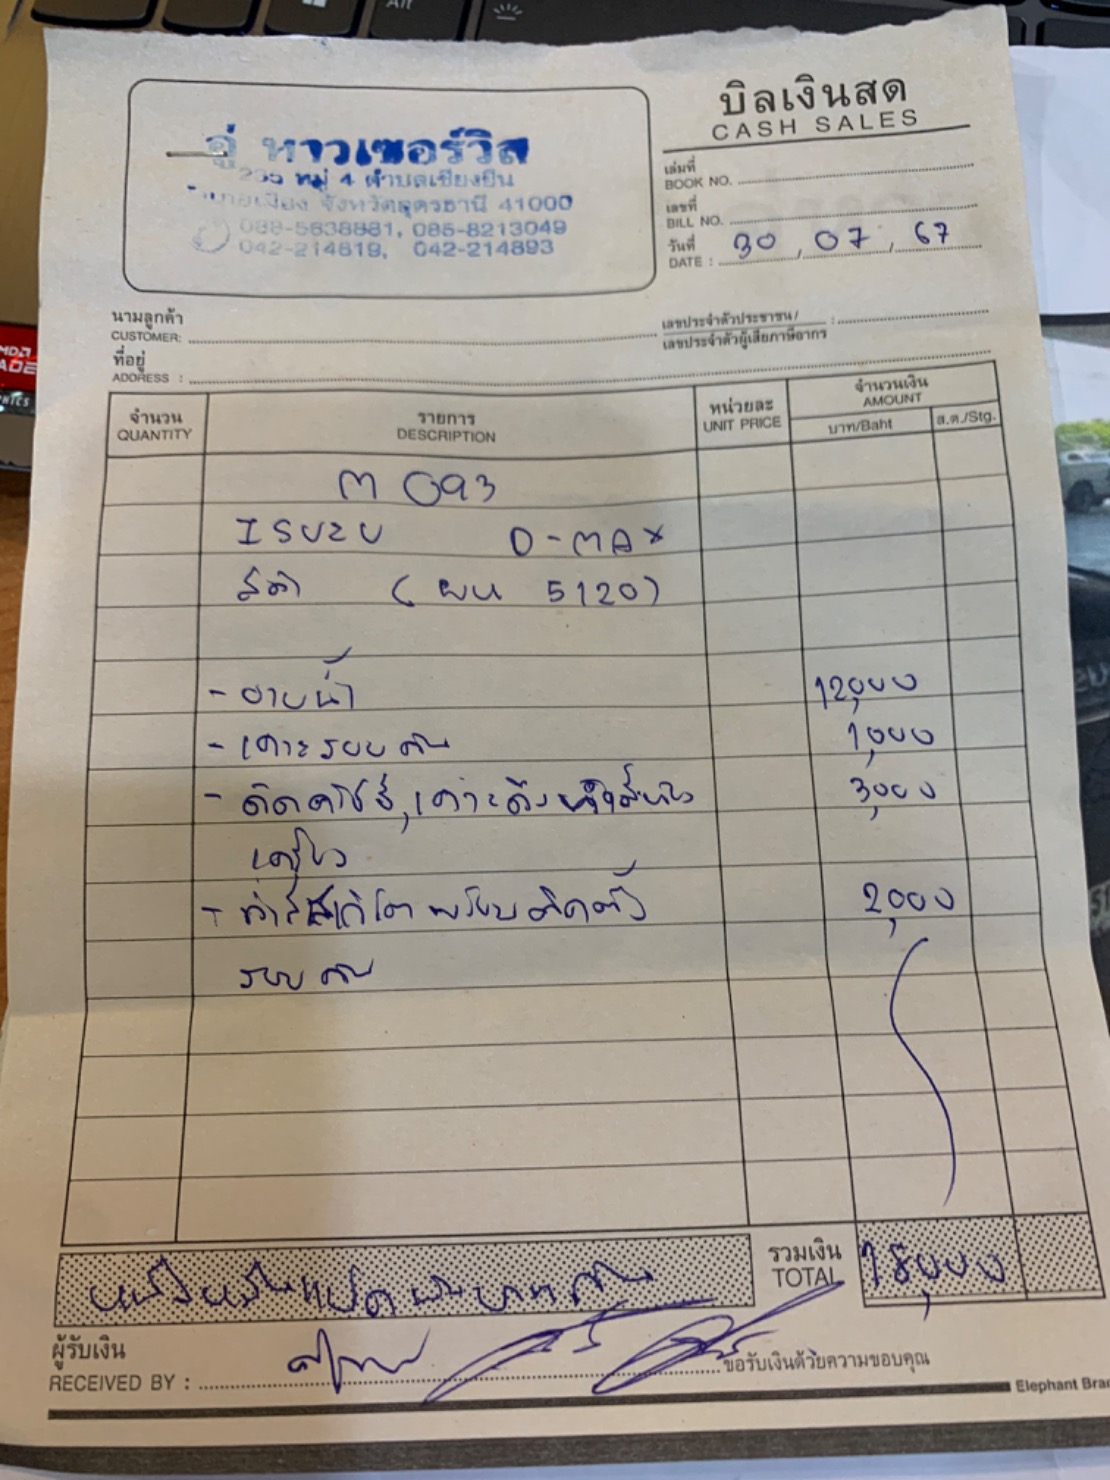 บิลเงินสด
CASH SALES
อู่ ทาวเซอร์วิส
หมู่ 4 ตำบลเชียงยืน
จังหวัดอุดรธานี 41000
086-8213049
042-214819, 042-214893
เล่มที่
BOOK NO.
เลขที่
BILL NO.
วันที่
DATE : 30 / 07 / 67
นามลูกค้า
CUSTOMER:
เลขประจำตัวประชาชน/ :
เลขประจำตัวผู้เสียภาษีอากร
ที่อยู่
ADDRESS :
จำนวน รายการ หน่วยละ จำนวนเงิน
QUANTITY DESCRIPTION UNIT PRICE AMOUNT
บาท/Baht ส.ต./Stg.
M 093
ISUZU D-MAX
สีดำ ( ผน 5120)
- อาบน้ำ 12,000
- เคาะรอบคัน 1,000
3,000
- 2,000
รอบคัน
หนึ่งหมื่นแปดพันบาทถ้วน
รวมเงิน
TOTAL 18,000
ผู้รับเงิน
RECEIVED BY : ขอรับเงินด้วยความขอบคุณ
Elephant Bran